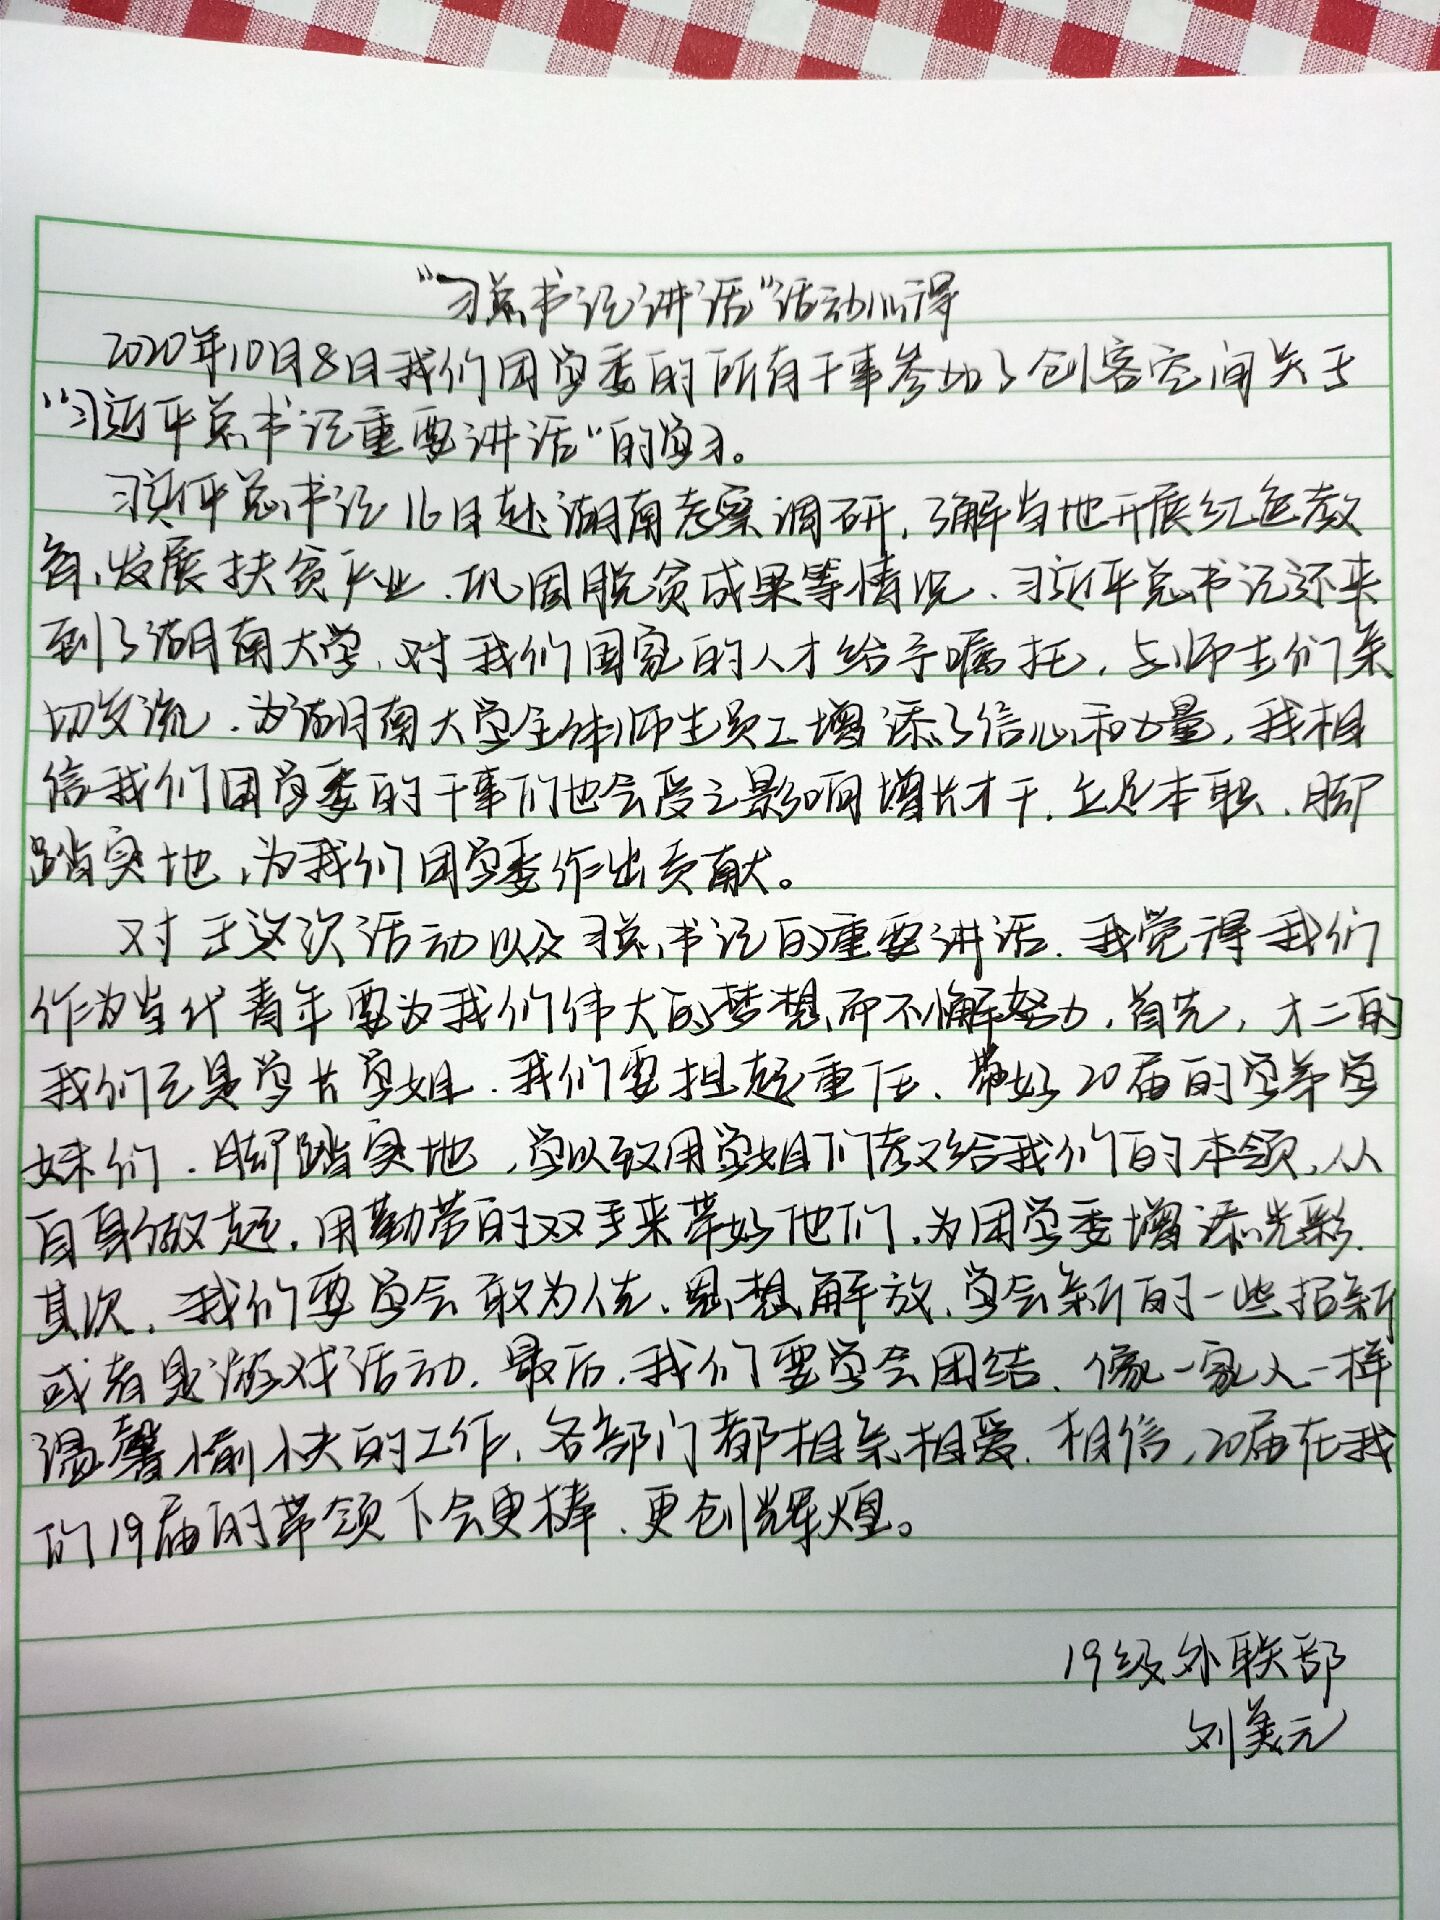 “习总书记讲话”活动心得
2020年10月8日我们团学委的所有干事参加了创客空间关于
“习近平总书记重要讲话”的学习。
习近平总书记16日赴湖南考察调研，了解当地开展红色教
育、发展扶贫产业、巩固脱贫成果等情况、习近平总书记还来
到了湖南大学、对我们国家的人才给予嘱托，与师生们亲
切交流、为湖南大学全体师生员工增添了信心和力量，我相
信我们团学委的干事们也会受之影响增长才干、立足本职、脚
踏实地，为我们团学委作出贡献。
对于这次活动以及习总书记的重要讲话、我觉得我们
作为当代青年要为我们伟大的梦想而不懈努力，首先，大二的
我们已是学长学姐、我们要担起重任、带好20届的学弟学
妹们、脚踏实地，学以致用学姐们教给我们的本领、从
自身做起，用勤劳的双手来带好他们，为团学委增添光彩、
其次、我们要学会敢为人先、思想解放、学会新的一些招新
或者是游戏活动、最后、我们要学会团结、像一家人一样
温馨愉快的工作、各部门都相亲相爱、相信，20届在我
们19届的带领下会更棒、更创辉煌。
19级外联部
刘美元